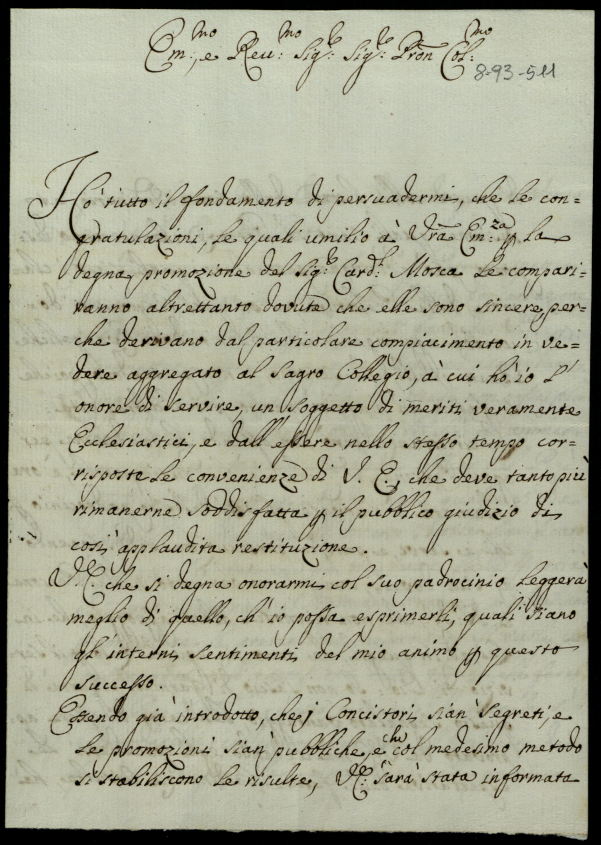 Em:mo, e Reu:mo Sig:r Sig:r Prōn Col:mo
8-93-511
Hò tutto il fondamento di persuadermi, che le con=
gratulazioni, le quali umilio à Vrā Em:za ꝑ la
degna promozione del Sig:r Card:l Mosca le compari=
ranno altrettanto dovute che elle sono sincere, per=
che derivano dal particolare compiacimento in ve=
dere aggregato al Sagro Collegio, à cui hò io l'
onore di servire, un soggetto di meriti veramente
Ecclesiastici, e dall'essere nello stesso tempo cor=
risposte le convenienze di V. E., che deve tanto più
rimanerne soddisfatta ꝑ il pubblico giudizio di
così applaudita restituzione.
V.E. che si degna onorarmi col suo padrocinio leggerà
meglio di quello, ch'io possa esprimerli, quali siano
gl'interni sentimenti del mio animo ꝑ questo
successo.
Essendo già introdotto, che i Concistori sian' segreti, e
le promozioni sian' pubbliche, e che col medesimo metodo
si stabiliscono le risulte, V.E. sarà stata informata